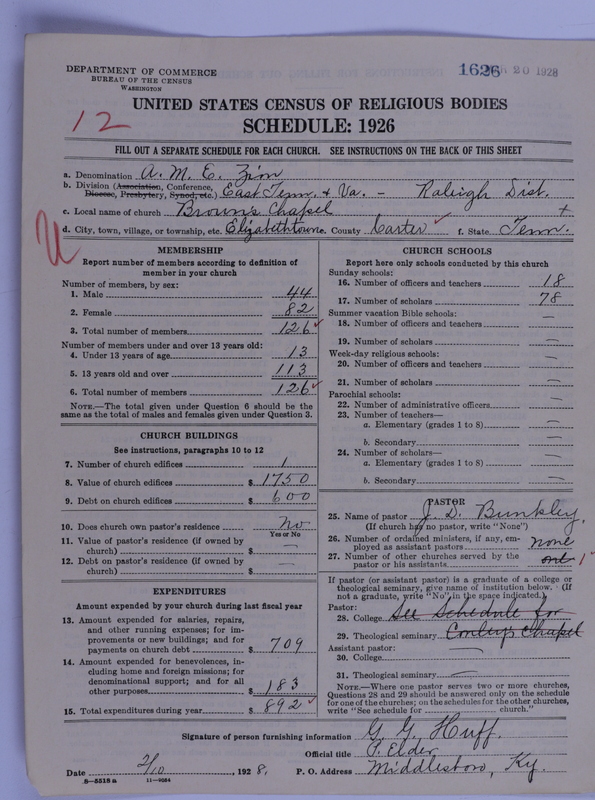 DEPARTMENT OF COMMERCE
BUREAU OF THE CENSUS
WASHINGTON
1626 20 1928
UNITED STATES CENSUS OF RELIGIOUS BODIES
SCHEDULE: 1926
12
FILL OUT A SEPARATE SCHEDULE FOR EACH CHURCH. SEE INSTRUCTIONS ON THE BACK OF THIS SHEET
a. Denomination A. M. E. Zion
b. Division (Association, Conference, Diocese, Presbytery, Synod, etc.) East Tenn. & Va. - Raleigh Dist.
c. Local name of church Browns Chapel +
d. City, town, village, or township, etc. Elizabethtown e. County Carter f. State Tenn.
MEMBERSHIP
Report number of members according to definition of
member in your church
Number of members, by sex:
1. Male 44
2. Female 82
3. Total number of members 126
Number of members under and over 13 years old:
4. Under 13 years of age 13
5. 13 years old and over 113
6. Total number of members 126
NOTE.—The total given under Question 6 should be
the same as the total of males and females given under Question 3.
CHURCH BUILDINGS
See instructions, paragraphs 10 to 12
7. Number of church edifices 1
8. Value of church edifices $ 1750
9. Debt on church edifices $ 600
10. Does church own pastor's residence No
Yes or No
11. Value of pastor's residence (if owned by
church) $ —
12. Debt on pastor's residence (if owned by
church) $ —
EXPENDITURES
Amount expended by your church during last fiscal year
13. Amount expended for salaries, repairs,
and other running expenses; for im-
provements or new buildings; and for
payments on church debt $ 709
14. Amount expended for benevolences, in-
cluding home and foreign missions; for
denominational support; and for all
other purposes $ 183
15. Total expenditures during year $ 892
CHURCH SCHOOLS
Report here only schools conducted by this church
Sunday schools:
16. Number of officers and teachers 18
17. Number of scholars 78
Summer vacation Bible schools:
18. Number of officers and teachers —
19. Number of scholars —
Week-day religious schools:
20. Number of officers and teachers —
21. Number of scholars —
Parochial schools:
22. Number of administrative officers —
23. Number of teachers—
a. Elementary (grades 1 to 8) —
b. Secondary —
24. Number of scholars—
a. Elementary (grades 1 to 8) —
b. Secondary —
PASTOR
25. Name of pastor J. D. Bunkley.
(If church has no pastor, write "None")
26. Number of ordained ministers, if any, em-
ployed as assistant pastors none
27. Number of other churches served by the
pastor or his assistants one 1
If pastor (or assistant pastor) is a graduate of a college or
theological seminary, give name of institution below. (If
not a graduate, write "No" in the space indicated.)
Pastor:
28. College See Schedule for
29. Theological seminary Conleys Chapel
Assistant pastor:
30. College —
31. Theological seminary —
NOTE.—Where one pastor serves two or more churches,
Questions 28 and 29 should be answered only on the schedule
for one of the churches; on the schedules for the other churches,
write "See schedule for ____ church."
Signature of person furnishing information G. G. Huff.
Official title P. Elder
Date 2/10, 1928. P. O. Address Middlesboro, Ky.
8—5518 a 11—9264